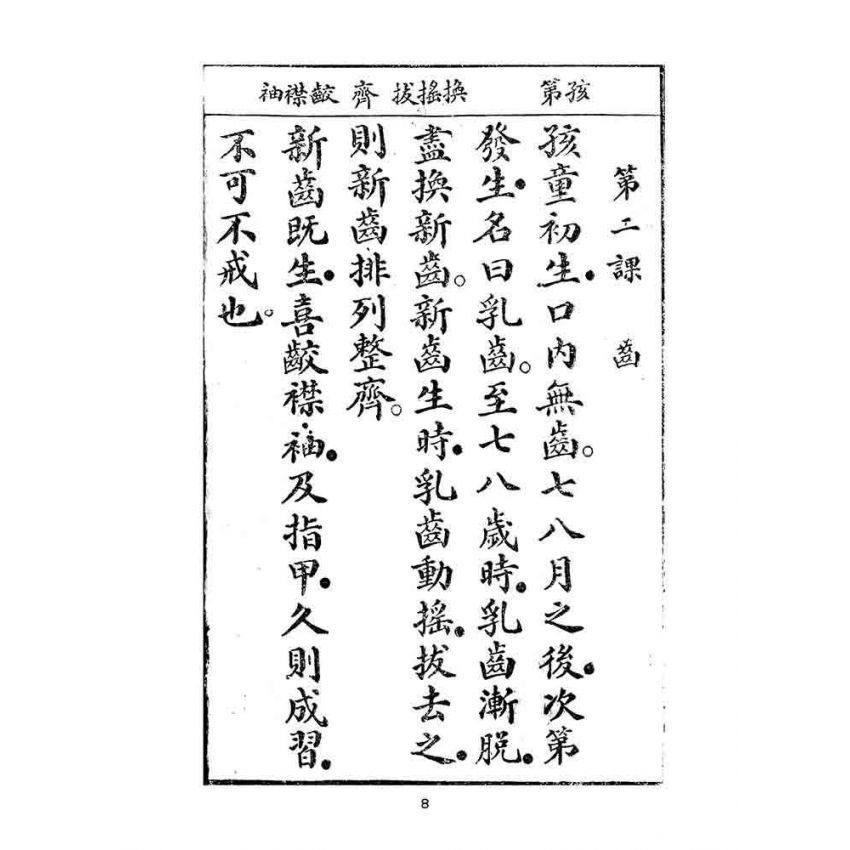 孩第　換搖拔　齊　齩襟袖
第二課　齒
孩童初生．口內無齒。七八月之後．次第
發生．名曰乳齒。至七八歲時．乳齒漸脫．
盡換新齒。新齒生時．乳齒動搖．拔去之．
則新齒排列整齊。
新齒既生．喜齩襟袖．及指甲．久則成習．
不可不戒也。
8